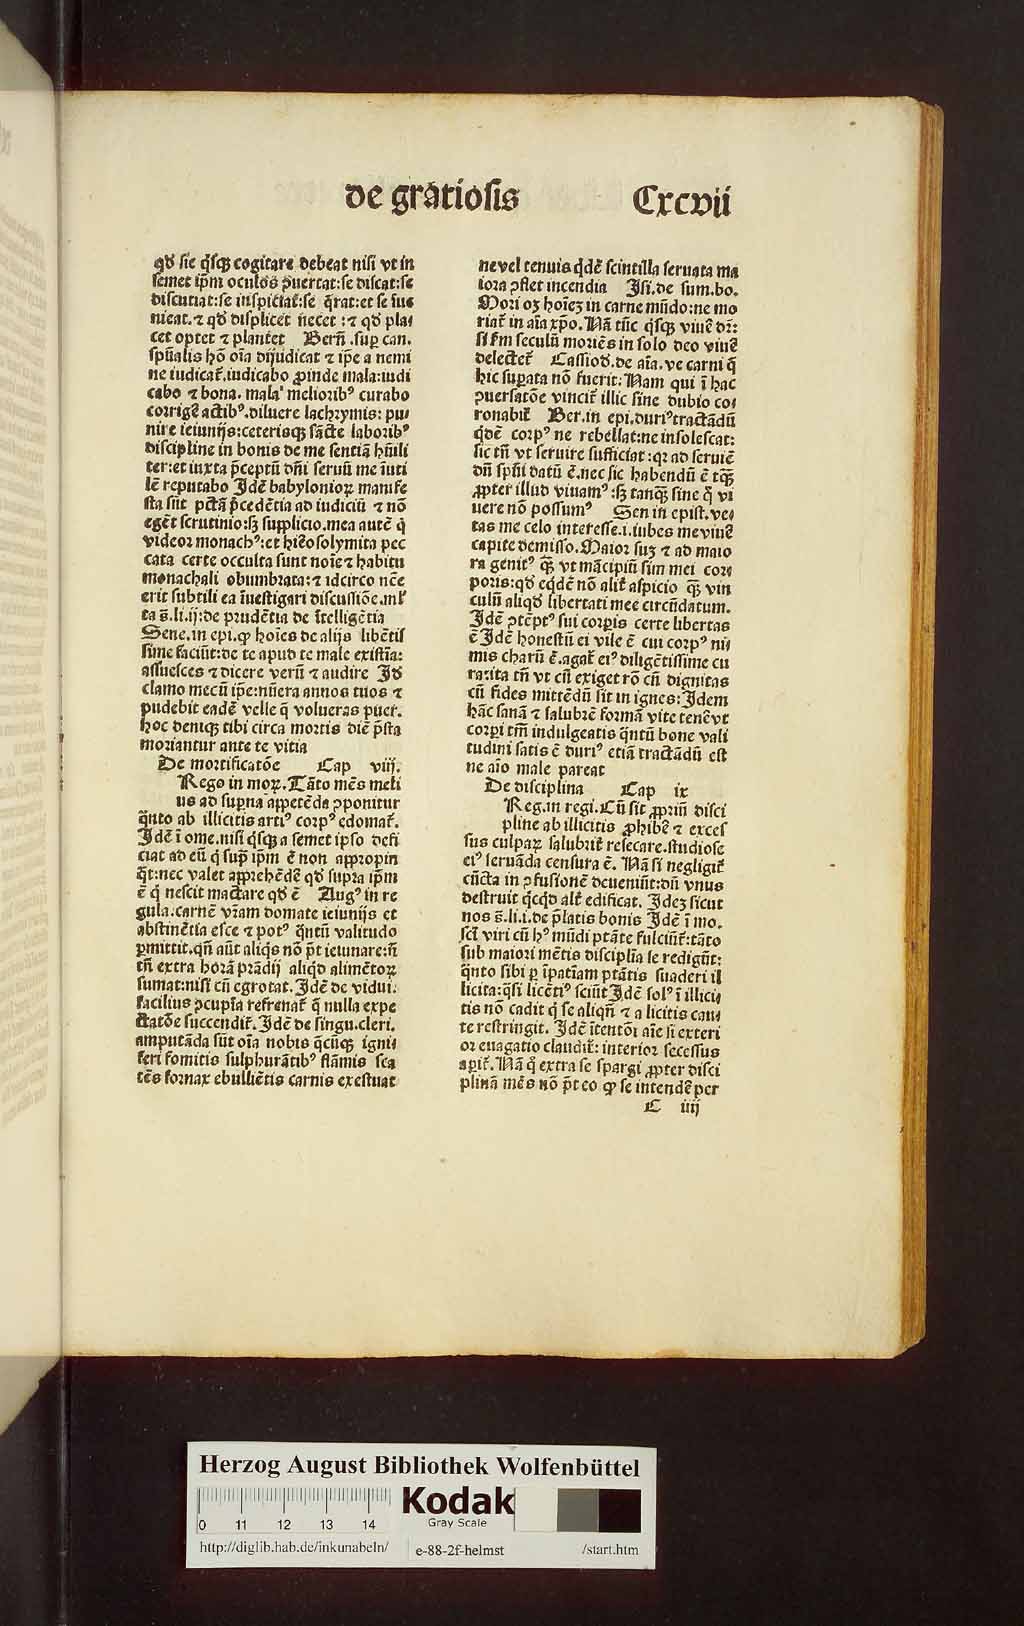 de gratiosis Cxcvii
qď sic q̃sq̃ cogitare debeat nisi vt in
semet ip̃m oculos ꝯuertat:se discat:se
discutiat:se inspiciat:se q̃rat:et se īue
niat.⁊ qď displicet necet :⁊ qď pla⸗
cet optet ⁊ plantet Bern̄.suꝑ can.
spũalis hõ oĩa dijudicat ⁊ ip̃e a nemi
ne iudicat̃.iudicabo ꝓinde mala:iudi
cabo ⁊ bona. mala meliorib⁹ curabo
corrigẽ actib⁹.diluere lachrymis: pu⸗
nire ieiunijs:ceterisq̃ sãcte laborib⁹
discipline in bonis de me sentiã hũili
ter:et iuxta p̃ceptũ dñi seruũ me ĩuti
lẽ reputabo Idẽ babylonioꝝ manife
sta sũt pctã p̃cedẽtia ad iudiciũ ⁊ nõ
egẽt scrutinio:sꝫ supplicio.mea autẽ q̃
videor monach⁹:et hierosolymita pec
cata certe occulta sunt noĩe ⁊ habitu
monachali obumbrata:⁊ idcirco nẽe
erit subtili ea ĩuestigari discussiõe.ml̃
ta s̃.li.ij:de prudẽtia de ĩtelligẽtia
Sene.in epi.ꝙ hoĩes de alijs libẽtis
sime faciũt:de te apud te male existĩa:
assuesces ⁊ dicere verũ ⁊ audire Id
clamo mecũ ip̃e:nũera annos tuos ⁊
pudebit eadẽ velle q̃ volueras puer.
hoc deniq̃ tibi circa mortis diẽ p̃sta
moriantur ante te vitia
De mortificatõe Cap viij.
Rego in moꝝ.Tãto mẽs meli
us ad suꝑna appetẽda ꝓponitur
q̃nto ab illicitis arti⁹ corp⁹ edomat̃.
Idẽ ĩ ome.nisi q̃sq̃ a semet ipso defi
ciat ad eũ q̃ sup̃ ip̃m ẽ non appropin
q̃t:nec valet apprehẽdẽ qď supra ip̃m
ẽ q̃ nescit mactare qď ẽ Aug⁹ in re
gula.carnẽ vr̃am domate ieiunijs et
abstinẽtia esce ⁊ pot⁹ q̃ntũ valitudo
ꝑmittit.qñ aũt aliq̃s nõ p̃t ieiunare:ñ
tñ extra horã prãdij aliq̃d alimẽtoꝝ
sumat:nisi cũ egrotat. Idẽ de vidui.
facilius ꝯcupĩa refrenat̃ q̃ nulla expe
ctatõe succendit̃.Idẽ de singu.cleri.
amputãda sũt oĩa nobis q̃cũq̃ igni⸗
feri fomitis sulphurãtib⁹ flãmis sca
tẽs fornax ebulliẽtis carnis exestuat
ne vel tenuis q̃dẽ scintilla seruata ma
iora ꝯflet incendia Isi.de sum.bo.
Mori oꝫ hoĩeꝫ in carne mũdo:ne mo
riat̃ in aĩa xp̃o. Nã tũc q̃sq̃ viuẽ dr̃:
si fm seculũ moriẽs in solo deo viuẽ
delectet̃ Cassiod.de aĩa.ve carni q̃
hic suꝑata nõ fuerit:Nam qui ĩ hac
ꝯuersatõe vincit̃ illic sine dubio co⸗
ronabit̃ Ber.in epi.duri⁹ tractãdũ
q̃dẽ corp⁹ ne rebellat:ne insolescat:
sic tñ vt seruire sufficiat:qꝛ ad seruiẽ
dũ sp̃ũi datũ ẽ.nec sic habendũ ẽ tq̃
ꝓpter illud viuam⁹:sꝫ tanq̃ sine q̃ vi
uere nõ possum⁹ Sen in epist.ve⸗
tas me celo interesse.i.iubes me viuẽ
capite demisso.Maior suꝫ ⁊ ad maio
ra genit⁹ q̃ vt mãcipiũ sim mei cor⸗
poris:qď eq̃dẽ nõ alit̃ aspicio q̃ vin
culũ aliqď libertati mee circũdatum.
Idẽ ꝯtẽpt⁹ sui corꝑis certe libertas
ẽ Idẽ honestũ ei vile ẽ cui corp⁹ ni⸗
mis charũ ẽ.agat̃ ei⁹ diligẽtissime cu
ra:ita tñ vt cũ exiget rõ cũ dignitas
cũ fides mittẽdũ sit in ignes:Idem
hãc sanã ⁊ salubrẽ formã vite tenẽ vt
corꝑi tm̃ indulgeatis q̃ntũ bone vali
tudini satis ẽ duri⁹ etiã tractãdũ est
ne aĩo male pareat
De disciplina Cap ix
Reg.in regi.Cũ sit ꝓpriũ disci
pline ab illicitis ꝓhibẽ ⁊ exces
sus culpaꝝ salubrit̃ resecare.studiose
ei⁹ seruãda censura ẽ. Nã si negligit̃
cũcta in ꝯfusionẽ deueniũt:dũ vnus
destruit q̃cq̃d alt̃ edificat. Ideꝫ sicut
nos s̃.li.i.de p̃latis bonis Idẽ ĩ mo.
sct̃i viri cũ h⁹ mũdi ptãte fulciũt̃:tãto
sub maiori mẽtis disciplĩa se redigũt:
q̃nto sibi ꝑ ĩpatĩam ptãtis suaderi il
licita:q̃si licẽti⁹ sciũt Idẽ sol⁹ ĩ illici⸗
tis nõ cadit q̃ se aliqñ ⁊ a licitis cau⸗
te restringit. Idẽ ĩtentõi aĩe si exteri
or euagatio claudit̃: interior secessus
aꝑit̃.Nã q̃ extra se spargi ꝓpter disci
plinã mẽs nõ p̃t eo ꝙ se intendẽ per
C iiij
Herzog August Bibliothek Wolfenbüttel
0 11 12 13 14
Kodak
Gray Scale
http://diglib.hab.de/inkunabeln/ e-88-2f-helmst /start.htm